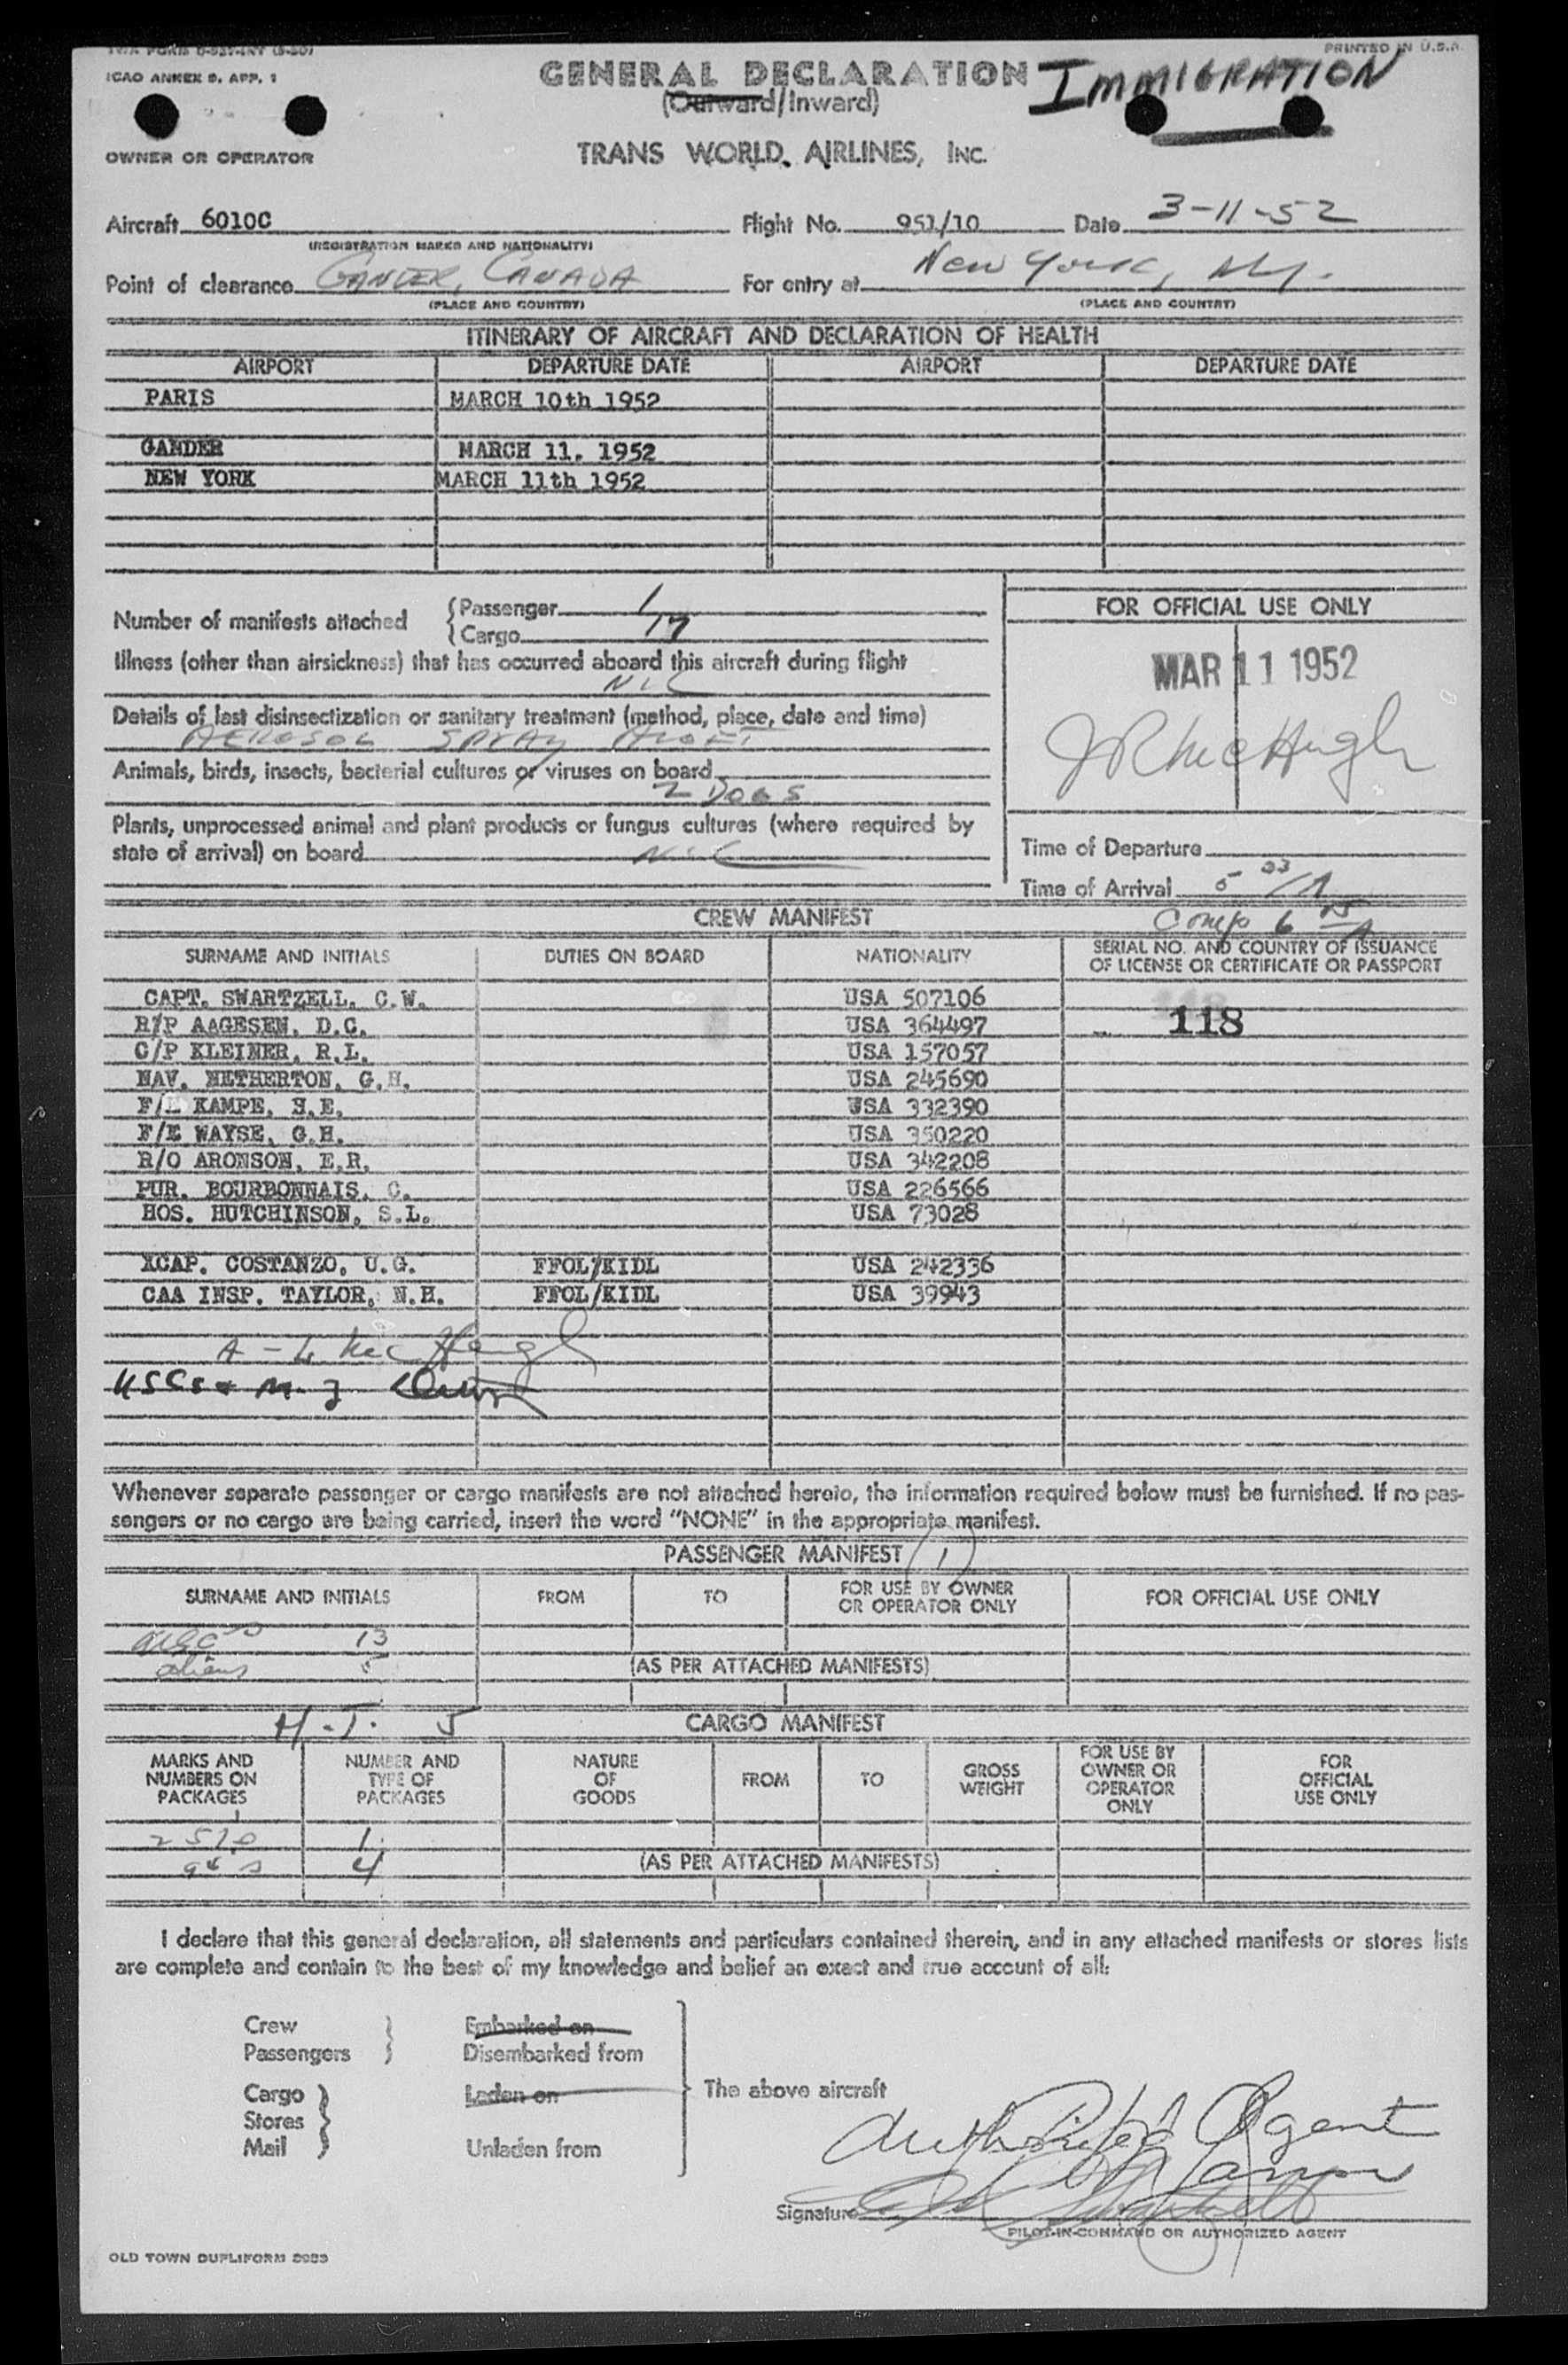 TWA FORM
PRINTED IN U.S.A.
ICAO ANNEX 9, APP. 1
GENERAL DECLARATION
IMMIGRATION
(Outward/Inward)
OWNER OR OPERATOR
TRANS WORLD AIRLINES, INC.
Aircraft 6010C Flight No. 951/10 Date 3-11-52
(REGISTRATION MARKS AND NATIONALITY)
Point of clearance GANDER, CANADA For entry at New York, N.Y.
(PLACE AND COUNTRY) (PLACE AND COUNTRY)
ITINERARY OF AIRCRAFT AND DECLARATION OF HEALTH
AIRPORT DEPARTURE DATE AIRPORT DEPARTURE DATE
PARIS MARCH 10th 1952
GANDER MARCH 11. 1952
NEW YORK MARCH 11th 1952
Number of manifests attached {Passenger 1
{Cargo 17
Illness (other than airsickness) that has occurred aboard this aircraft during flight
NIL
Details of last disinsectization or sanitary treatment (method, place, date and time)
AEROSOL SPRAY ALOFT
Animals, birds, insects, bacterial cultures or viruses on board
2 DOGS
Plants, unprocessed animal and plant products or fungus cultures (where required by
state of arrival) on board NIL
FOR OFFICIAL USE ONLY
MAR 11 1952
JR McHugh
Time of Departure
Time of Arrival 5 03/A
Comp 6 15/A
CREW MANIFEST
SURNAME AND INITIALS DUTIES ON BOARD NATIONALITY SERIAL NO. AND COUNTRY OF ISSUANCE
OF LICENSE OR CERTIFICATE OR PASSPORT
CAPT. SWARTZELL, C.W. USA 507106
R/P AAGESEN, D.C. USA 364497 118
C/P KLEINER, R.L. USA 157057
NAV. NETHERTON, G.H. USA 245690
F/E KAMPE, H.E. USA 332390
F/E WAYSE, G.H. USA 350220
R/O ARONSON, E.R. USA 342208
PUR. BOURBONNAIS, C. USA 226566
HOS. HUTCHINSON, S.L. USA 73028
XCAP. COSTANZO, U.G. FFOL/KIDL USA 242336
CAA INSP. TAYLOR, N.H. FFOL/KIDL USA 39943
McHugh
Whenever separate passenger or cargo manifests are not attached hereto, the information required below must be furnished. If no pas-
sengers or no cargo are being carried, insert the word "NONE" in the appropriate manifest.
PASSENGER MANIFEST (1)
SURNAME AND INITIALS FROM TO FOR USE BY OWNER
OR OPERATOR ONLY FOR OFFICIAL USE ONLY
13
aliens 5 (AS PER ATTACHED MANIFESTS)
H.T. 5 CARGO MANIFEST
MARKS AND
NUMBERS ON
PACKAGES
NUMBER AND
TYPE OF
PACKAGES
NATURE
OF
GOODS
FROM TO
GROSS
WEIGHT
FOR USE BY
OWNER OR
OPERATOR
ONLY
FOR
OFFICIAL
USE ONLY
1
4 (AS PER ATTACHED MANIFESTS)
I declare that this general declaration, all statements and particulars contained therein, and in any attached manifests or stores lists
are complete and contain to the best of my knowledge and belief an exact and true account of all:
Crew Embarked on
Passengers Disembarked from
Cargo Laden on The above aircraft
Stores
Mail Unladen from
Authorized Agent
Signature
PILOT-IN-COMMAND OR AUTHORIZED AGENT
OLD TOWN DUPLIFORM